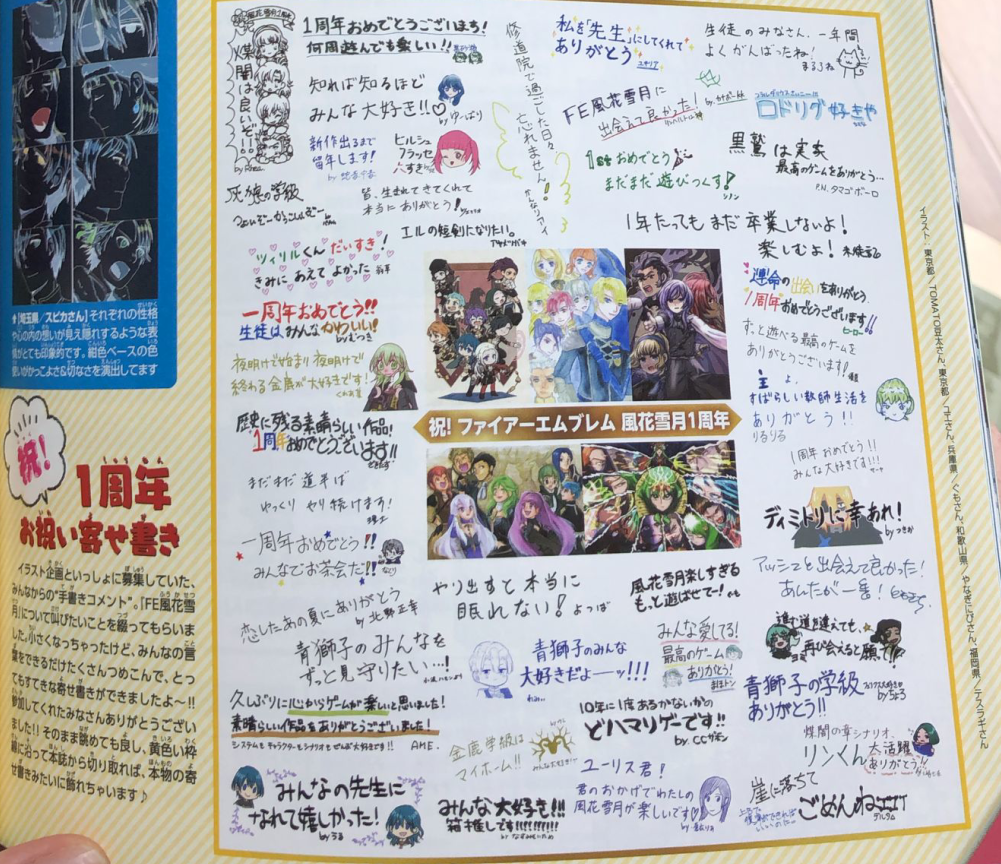 ↑[埼玉県/スピカさん]それぞれの性格
や心の内の想いが見え隠れするような表
情がとても印象的です。紺色ベースの色
使いがかっこよさ&切なさを演出してます
祝!
1周年
お祝い寄せ書き
イラスト企画といっしょに募集していた、
みんなからの“手書きコメント”。『FE風花雪
月』について叫びたいことを綴ってもらいま
した。小さくなっちゃったけど、みんなの言
葉をできるだけたくさんつめこんで、とっ
てもすてきな寄せ書きができましたよ〜!!
参加してくれたみなさんありがとうござい
ました!! そのまま眺めても良し、黄色い枠
線に沿って本誌から切り取れば、本物の寄
せ書きみたいに飾れちゃいます♪
煤闇は良いぞー!!
1周年おめでとうございまち!
何周遊んでも楽しい!!
知れば知るほど
みんな大好き!!♡
byゆっぱり
新作出るまで
留年します!
ヒルシュ
クラッセ
八すき
死の学級
皆、生まれてきてくれて
本当にありがとう!
修道院で過ごした日々
忘れません!
私を「先生」にしてくれて
ありがとう
ユキリア
生徒のみなさん、一年間
よくがんばったね!
FE風花雪月に
出会えて良かった!
ロドリグ好きや
1stおめでとう
まだまだ遊びつくす!
シノン
黒鷲は実家
最高のゲームをありがとう…
P.N.タマゴボーロ
エルの短剣になりたい。
1年たってもまだ卒業しないよ!
楽しむよ!
ツィリルくんだいすき!
きみにあえてよかった
一周年おめでとう!!
生徒はみんなかわいい!
byしつき
夜明けで始まり夜明けで
終わる金鹿が大好きです!
歴史に残る素晴らしい作品!
1周年おめでとうございます!!
まだまだ道半ば
ゆっくりやり続けます!
一周年おめでとう!!
みんなでお茶会だ!!
恋したあの夏にありがとう
by 北野正幸
祝! ファイアーエムブレム 風花雪月1周年
運命の出会いをありがとう。
1周年おめでとうございます!!
ヒーロー
ずっと遊べる最高のゲームを
ありがとうございます!
主よ、
すばらしい教師生活を
ありがとう!!
りるりる
1周年おめでとう!!
みんな大好きです!!!
ディミトリに幸あれ!
byつきか
アッシュと出会えて良かった!
あんたが一番!
進む道を違えても、
再び会えると願って!!
やり出すと本当に
眠れない!
よっぱ
風花雪月楽しすぎる
もっと遊ばせてー!
青獅子のみんなを
ずっと見守りたい…!
青獅子のみんな
大好きだよーッ!!!
みんな愛してる!
最高のゲーム
ありがとう!
青獅子の学級
ありがとう!!
byちょろ
久しぶりに心からゲームが楽しいと思いました!
素晴らしい作品をありがとうございました!
システムもキャラクターもシナリオもぜんぶ大好きです!! AME.
金鹿学級は
マイホーム!!
みんな大好き!
10年に1度あるかないかの
どハマりゲーです!!
by.CCサモン
煤闇の章シナリオ、
リンくん大活躍
ありがとう!!
みんなの先生に
なれて嬉しかった!
byうる
みんな大好き!!!
箱推しです!!!!!!!!!
ユーリス君!
君のおかげでわたしの
風花雪月が楽しいです♡
崖に落ちて
ごめんね
デルタム
イラスト:東京都/TOMATO豆太さん、東京都/ユエさん、兵庫県/ぐもさん、和歌山県/やなぎにびさん、福岡県/テスラギさん